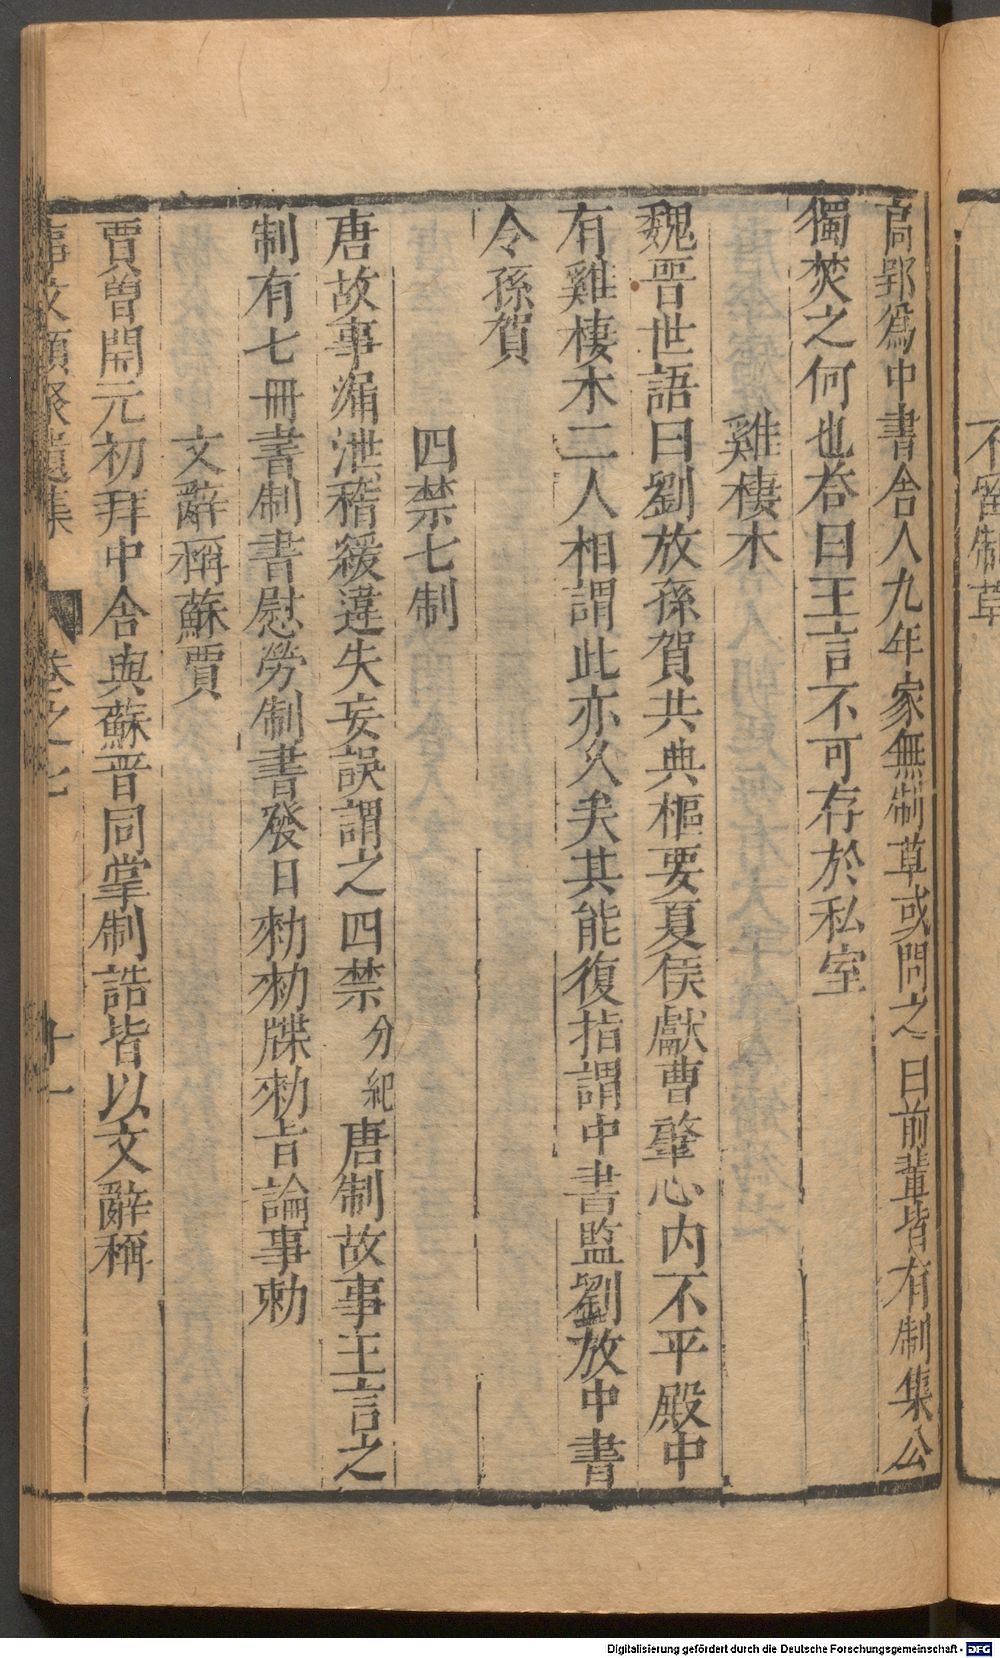 不留制草
高郢爲中書舎人九年家無制草或問之曰前輩皆有制集公
獨焚之何也答曰王言不可存於私室
雞棲木
魏晋世語曰劉放孫賀共典樞要夏侯獻曹肇心内不平殿中
有雞棲木二人相謂此亦久矣其能復指謂中書監劉放中書
令孫賀
四禁七制
唐故事漏泄稽緩違失妄誤謂之四禁分紀唐制故事王言之
制有七冊書制書慰勞制書發日勑勑牒勑旨論事勅
文辭稱蘇賈
賈曽開元初拜中舎與蘇晋同掌制誥皆以文辭稱
事文類聚遺集 卷之七 十一
Digitalisierung gefördert durch die Deutsche Forschungsgemeinschaft - DFG